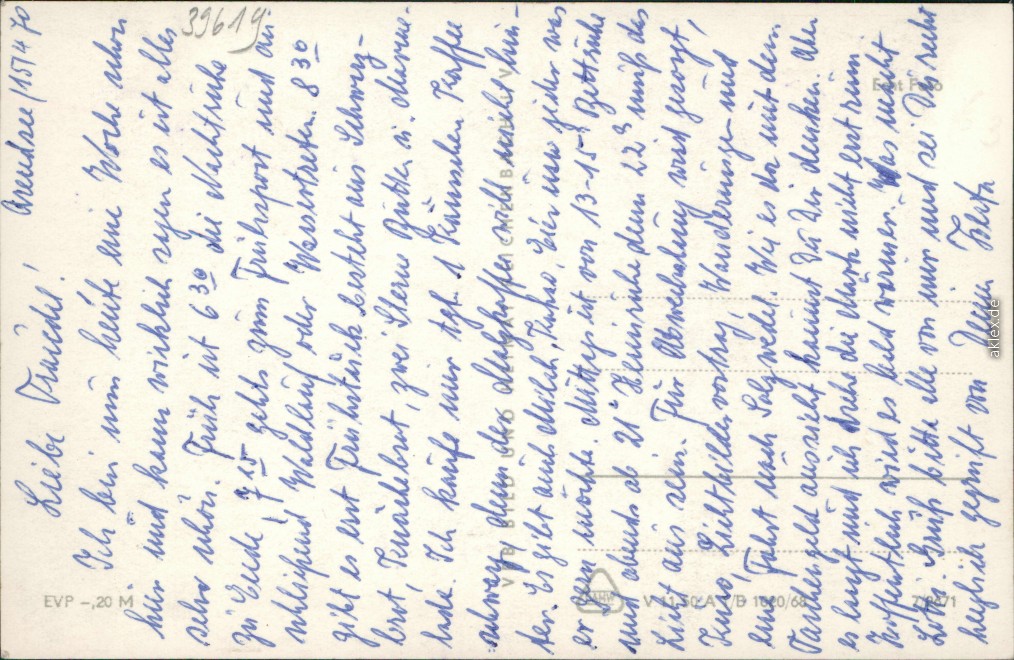 Arendsee, 15.4.70
Liebe Trudel!
Ich bin nun heute eine Woche schon
hier und kann wirklich sagen es ist alles
sehr schön. Früh ist 6³⁰ die Nachtruhe
zu Ende, 7¹⁵ gehts zum Frühsport und an
schließend Waldlauf oder Wassertreten. 8³⁰
gibt es erst Frühstück besteht aus Schwarz-
brot, Knäckebrot, zwei Stern Butter u. Marme-
lade. Ich kaufe mir tgl. 1 Kännchen Kaffee
schwarz denn der Malzkaffee wird nicht bit-
ter. Es gibt auch Milch, Kakao, Tee nun jeder was
er gern möchte. Mittags ist von 13-15 Bettruhe
und abends ab 21⁰⁰ Heimruhe denn 22⁰⁰ muß das
Licht aus sein. Für Abwechslung wird gesorgt,
Kino, Lichtbildervortrag, Wanderungen und
eine Fahrt nach Salzwedel. Wie es da mit dem
Taschengeld aussieht kannst Du Dir denken. Aber
es langt und ich drehe die Mark nicht erst rum.
Hoffentlich wird es bald wärmer. Was macht
Grüß bitte alle von mir und sei Du recht
herzlich gegrüßt von Deiner
39619
Echt Foto
VEB BILD UND HEIMAT REICHENBACH V
EVP -,20 M
V 11 50 A 1/B 1620/68
aklex.de